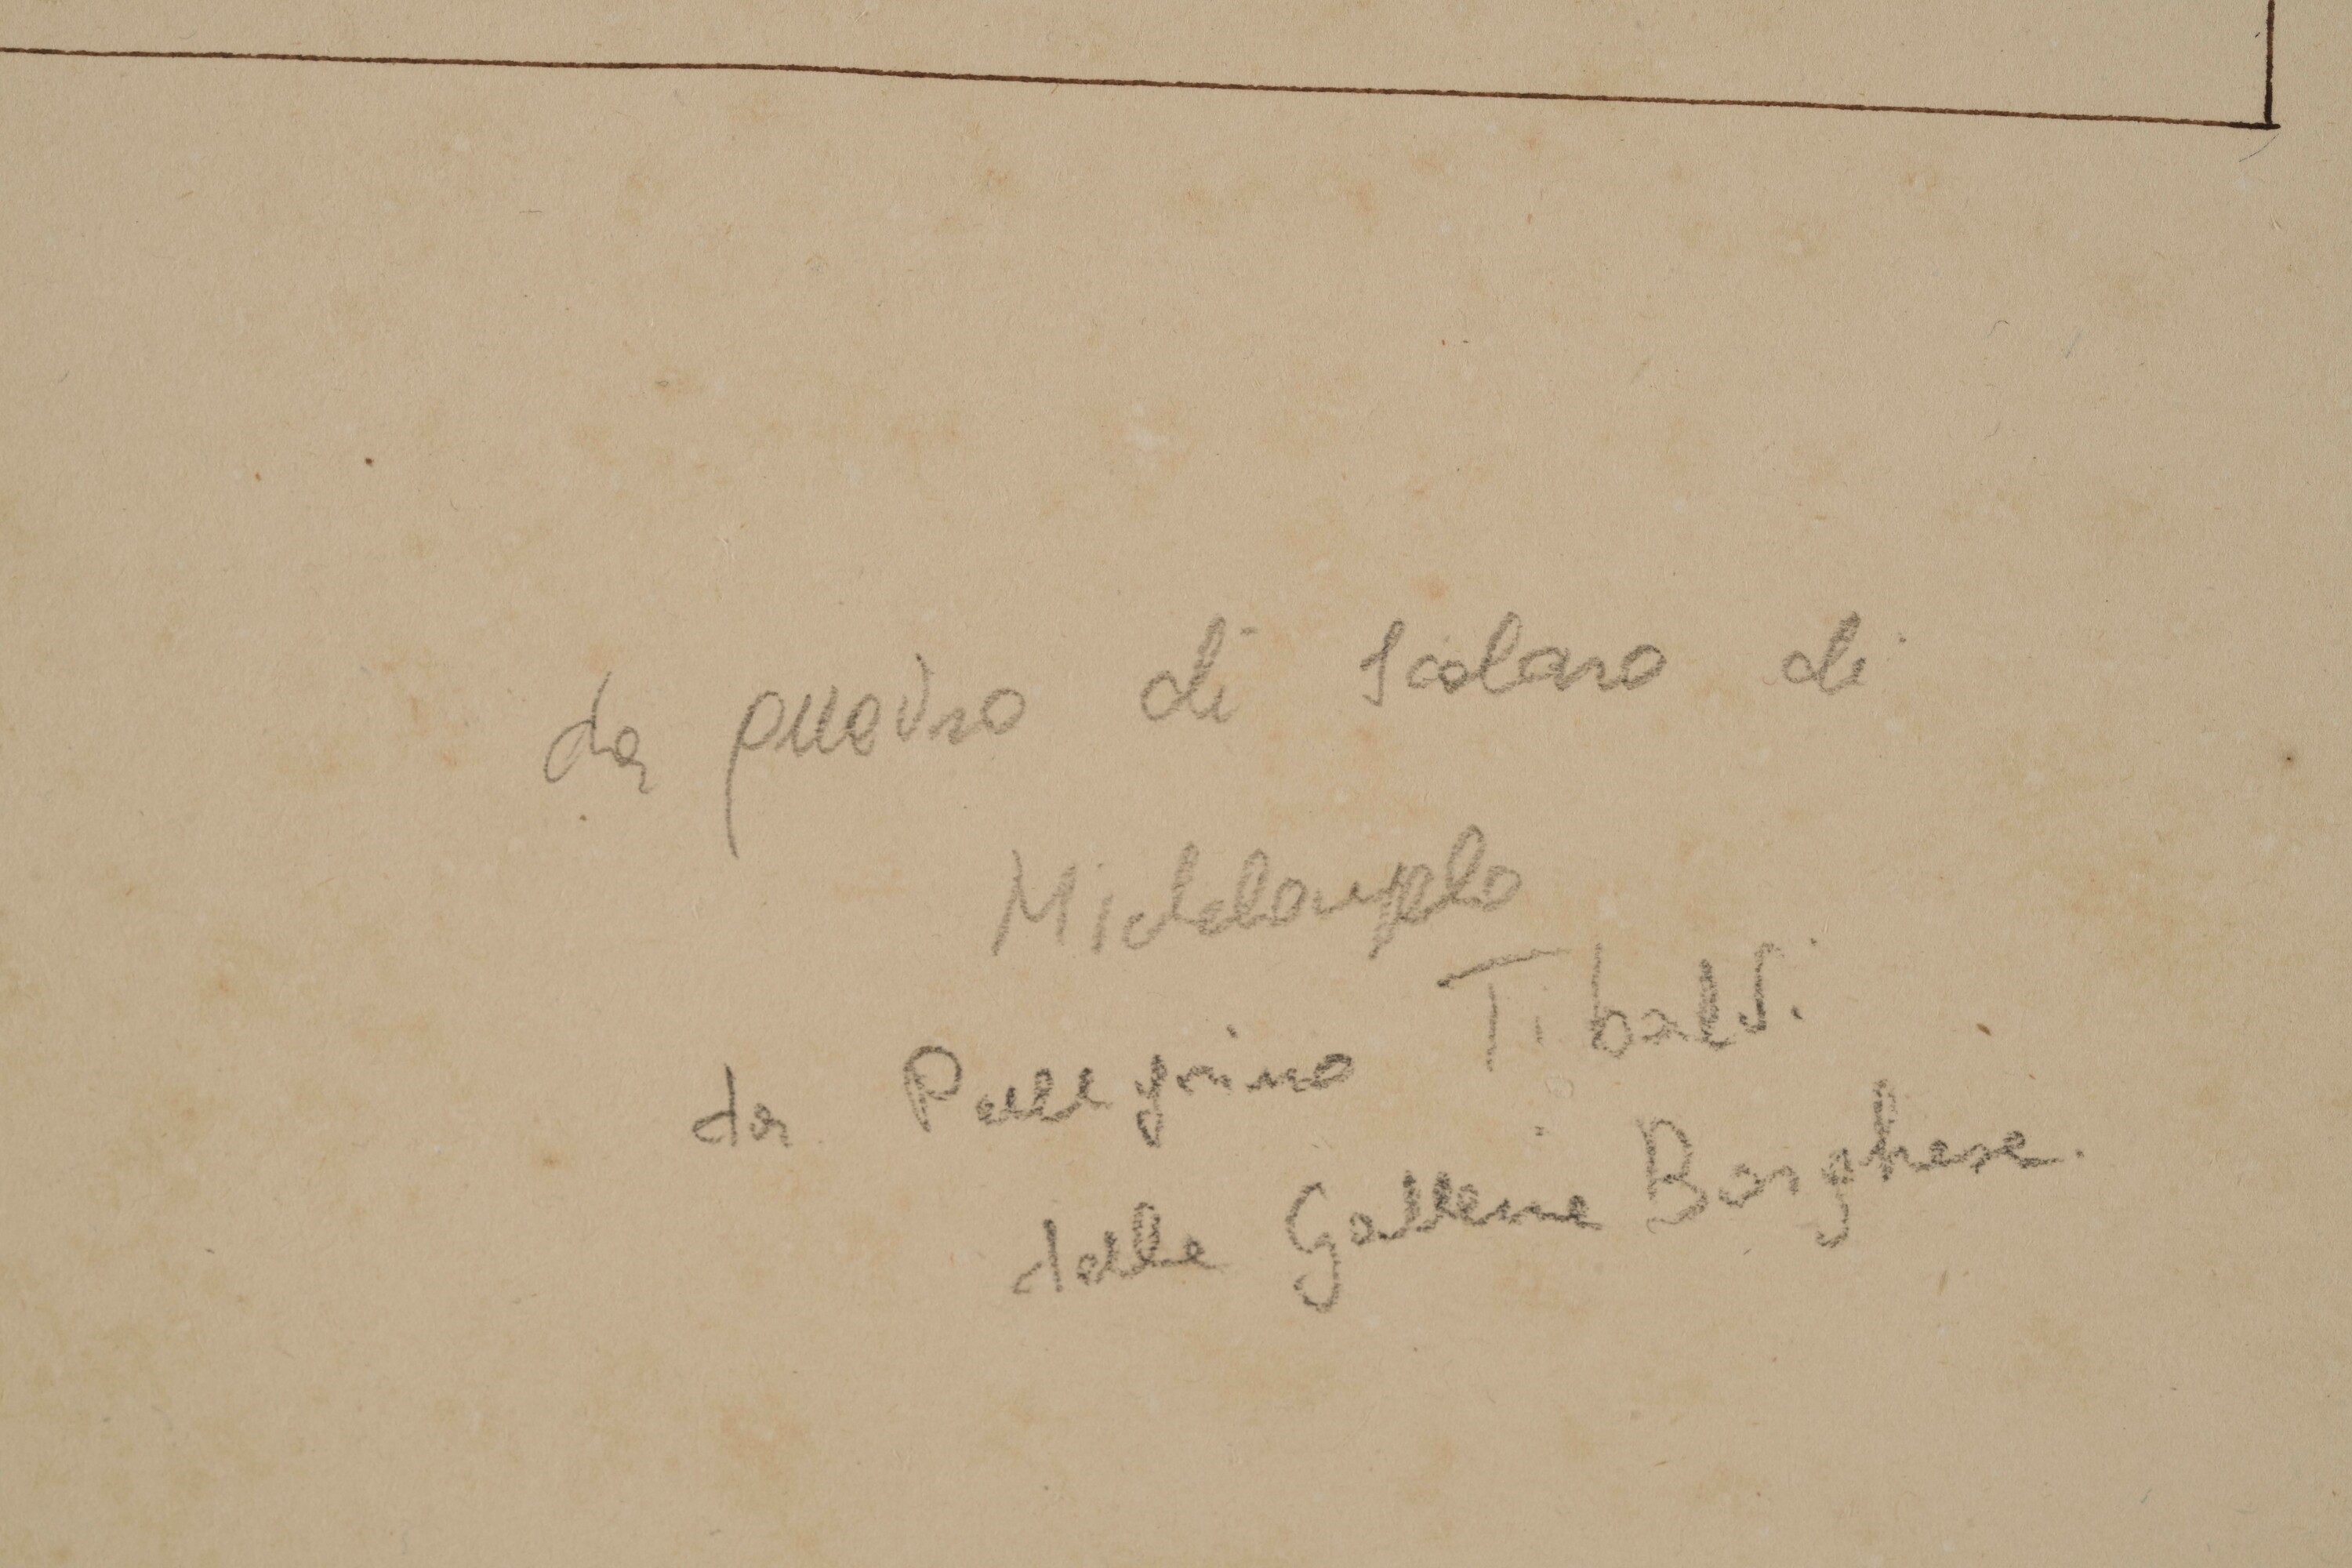 da quadro di scolaro di
Michelangelo
da Pellegrino Tibaldi
della Galleria Borghese.